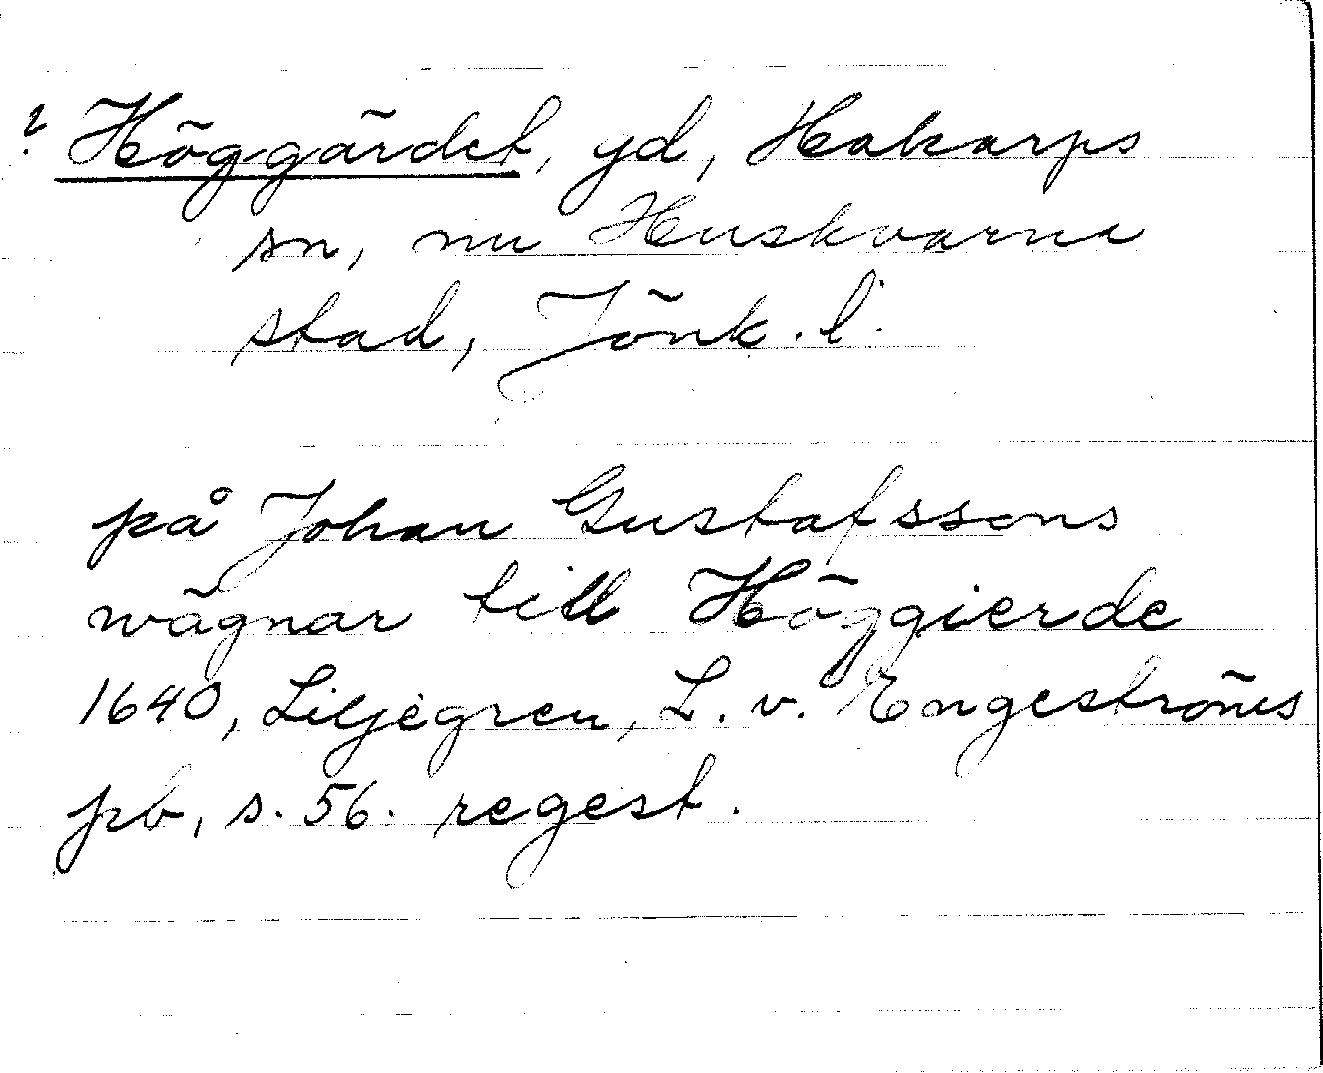 ? Höggärdet, gd, Hakarps
sn, nu Huskvarna
stad, Jönk. l.
på Johan Gustafssons
wägnar till Höggierde
1640, Liljegren, L. v. Engeströms
pb, s. 56. regest.